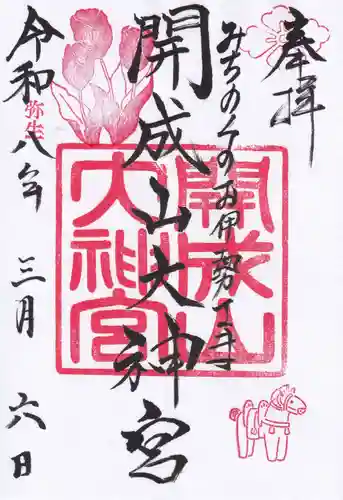 奉拝
みちのくのお伊勢さま
開成山大神宮
開成山
大神宮
令和八年 三月 六日
弥生